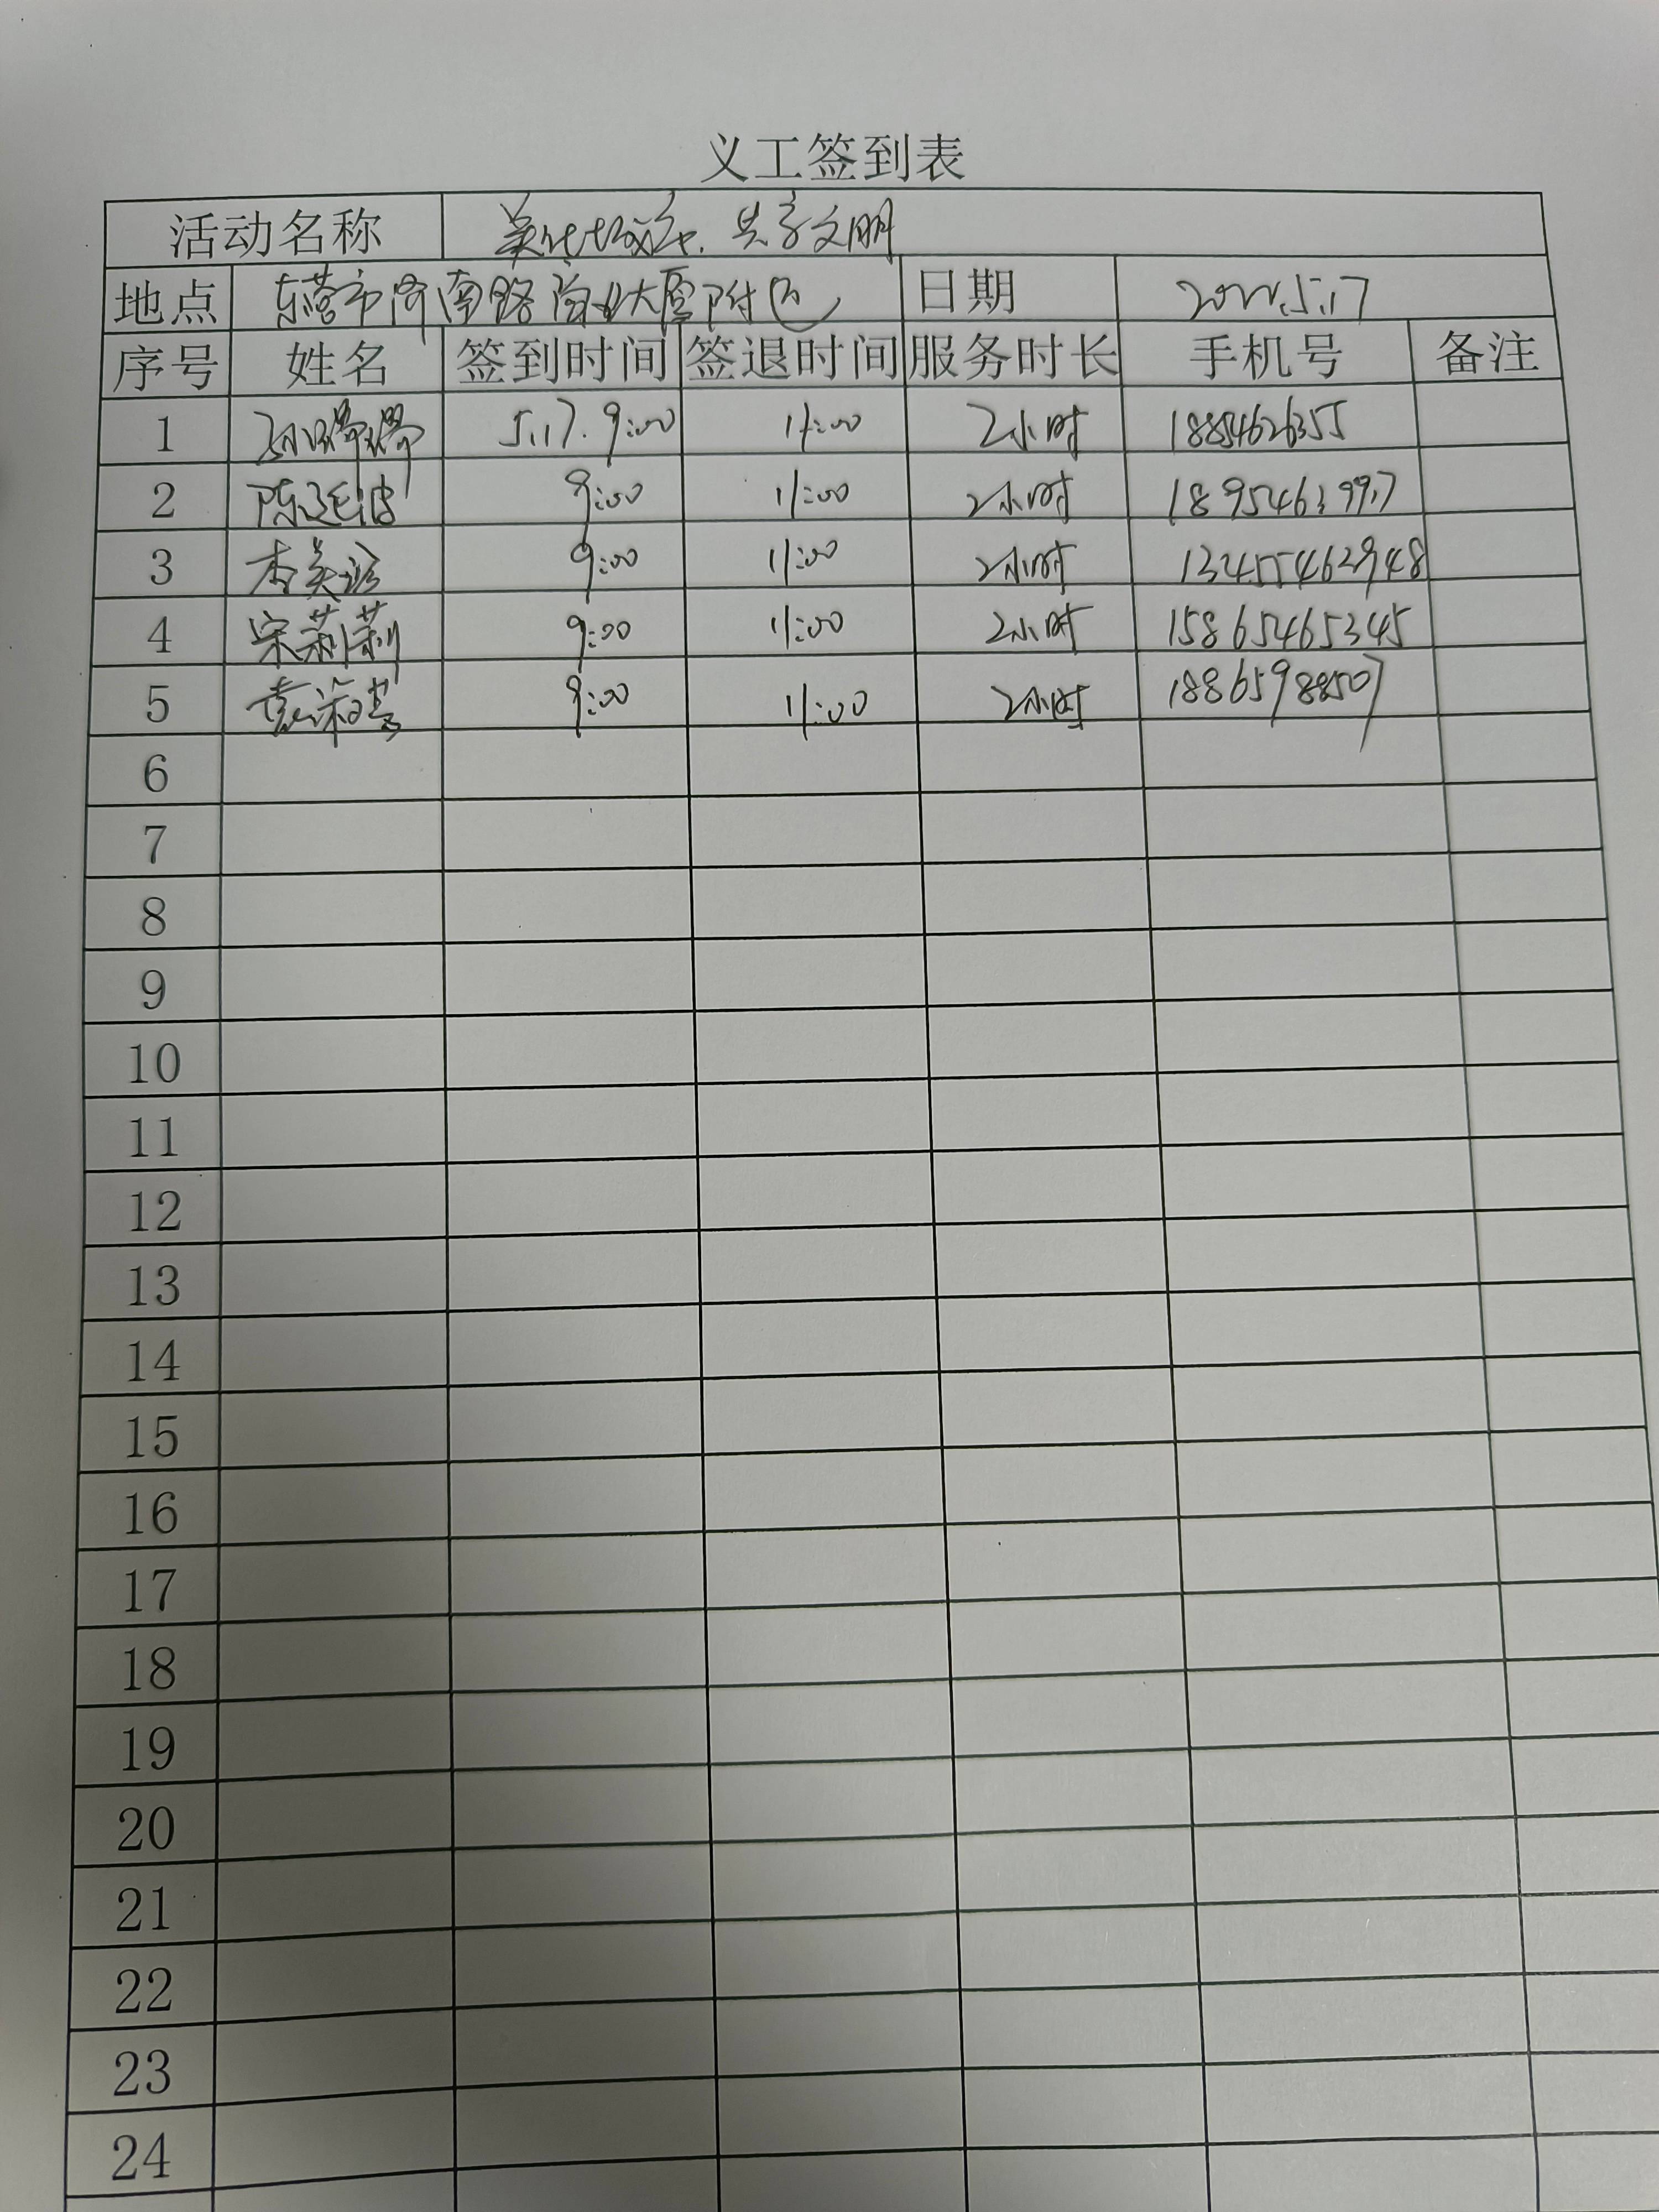 义工签到表
活动名称 美化城市.共享文明
地点 东营市济南路商业大厦附近 日期 2022.5.17
序号 姓名 签到时间 签退时间 服务时长 手机号 备注
1 5.17. 9:00 11:00 2小时 18854626355
2 陈延波 9:00 11:00 2小时
3 9:00 11:00 2小时 13455462948
4 宋莉莉 9:00 11:00 2小时 15865465345
5 9:00 11:00 2小时 18865988507
6
7
8
9
10
11
12
13
14
15
16
17
18
19
20
21
22
23
24